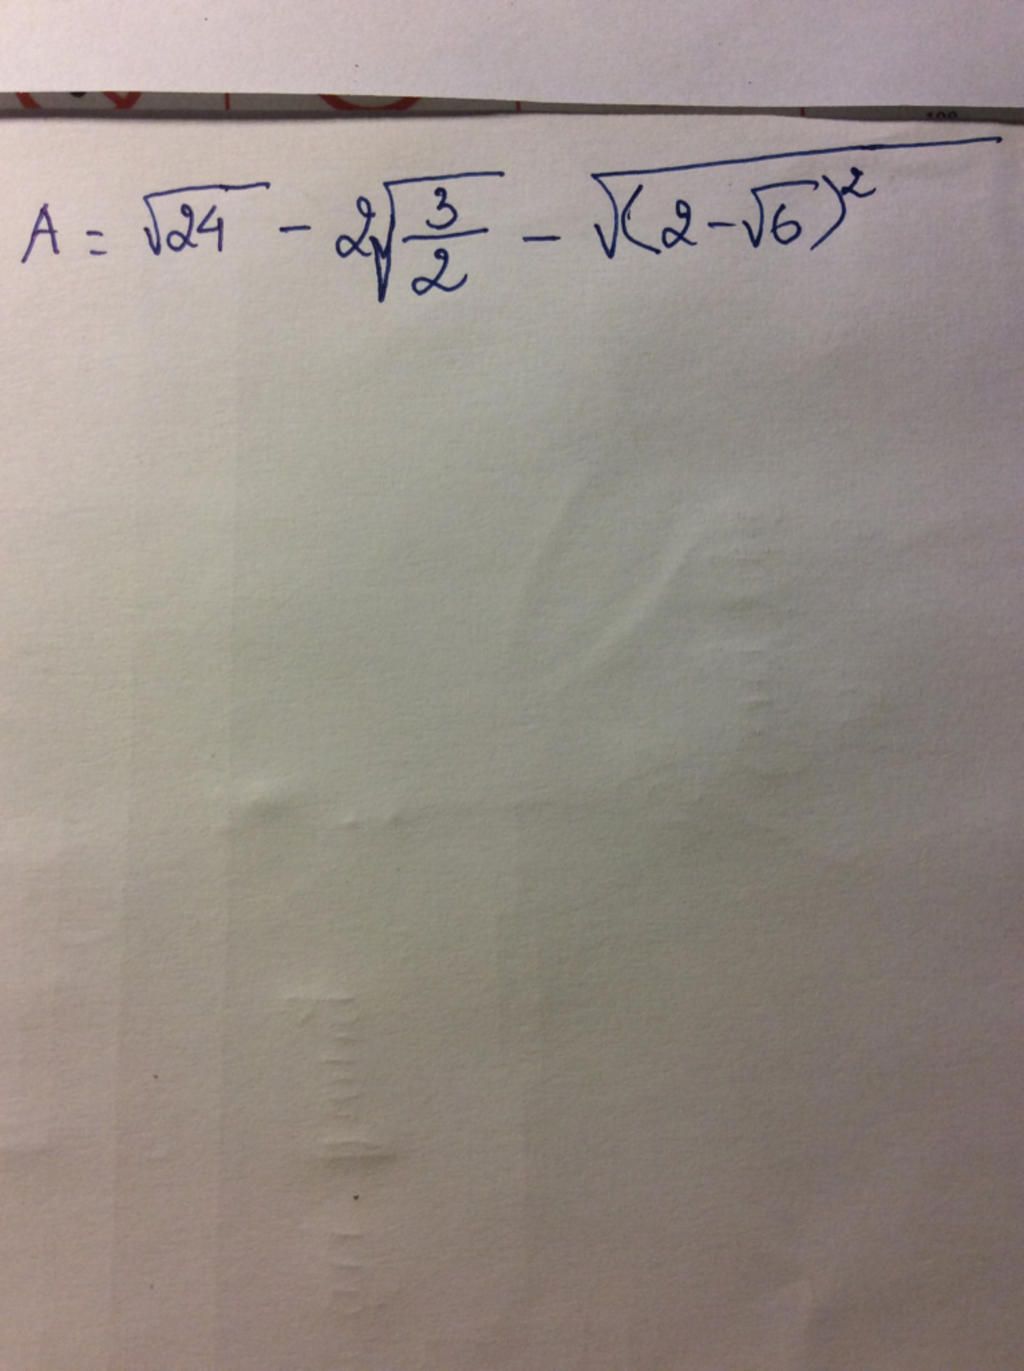 A = √24 - 2√(3/2) - √((2-√6)²)